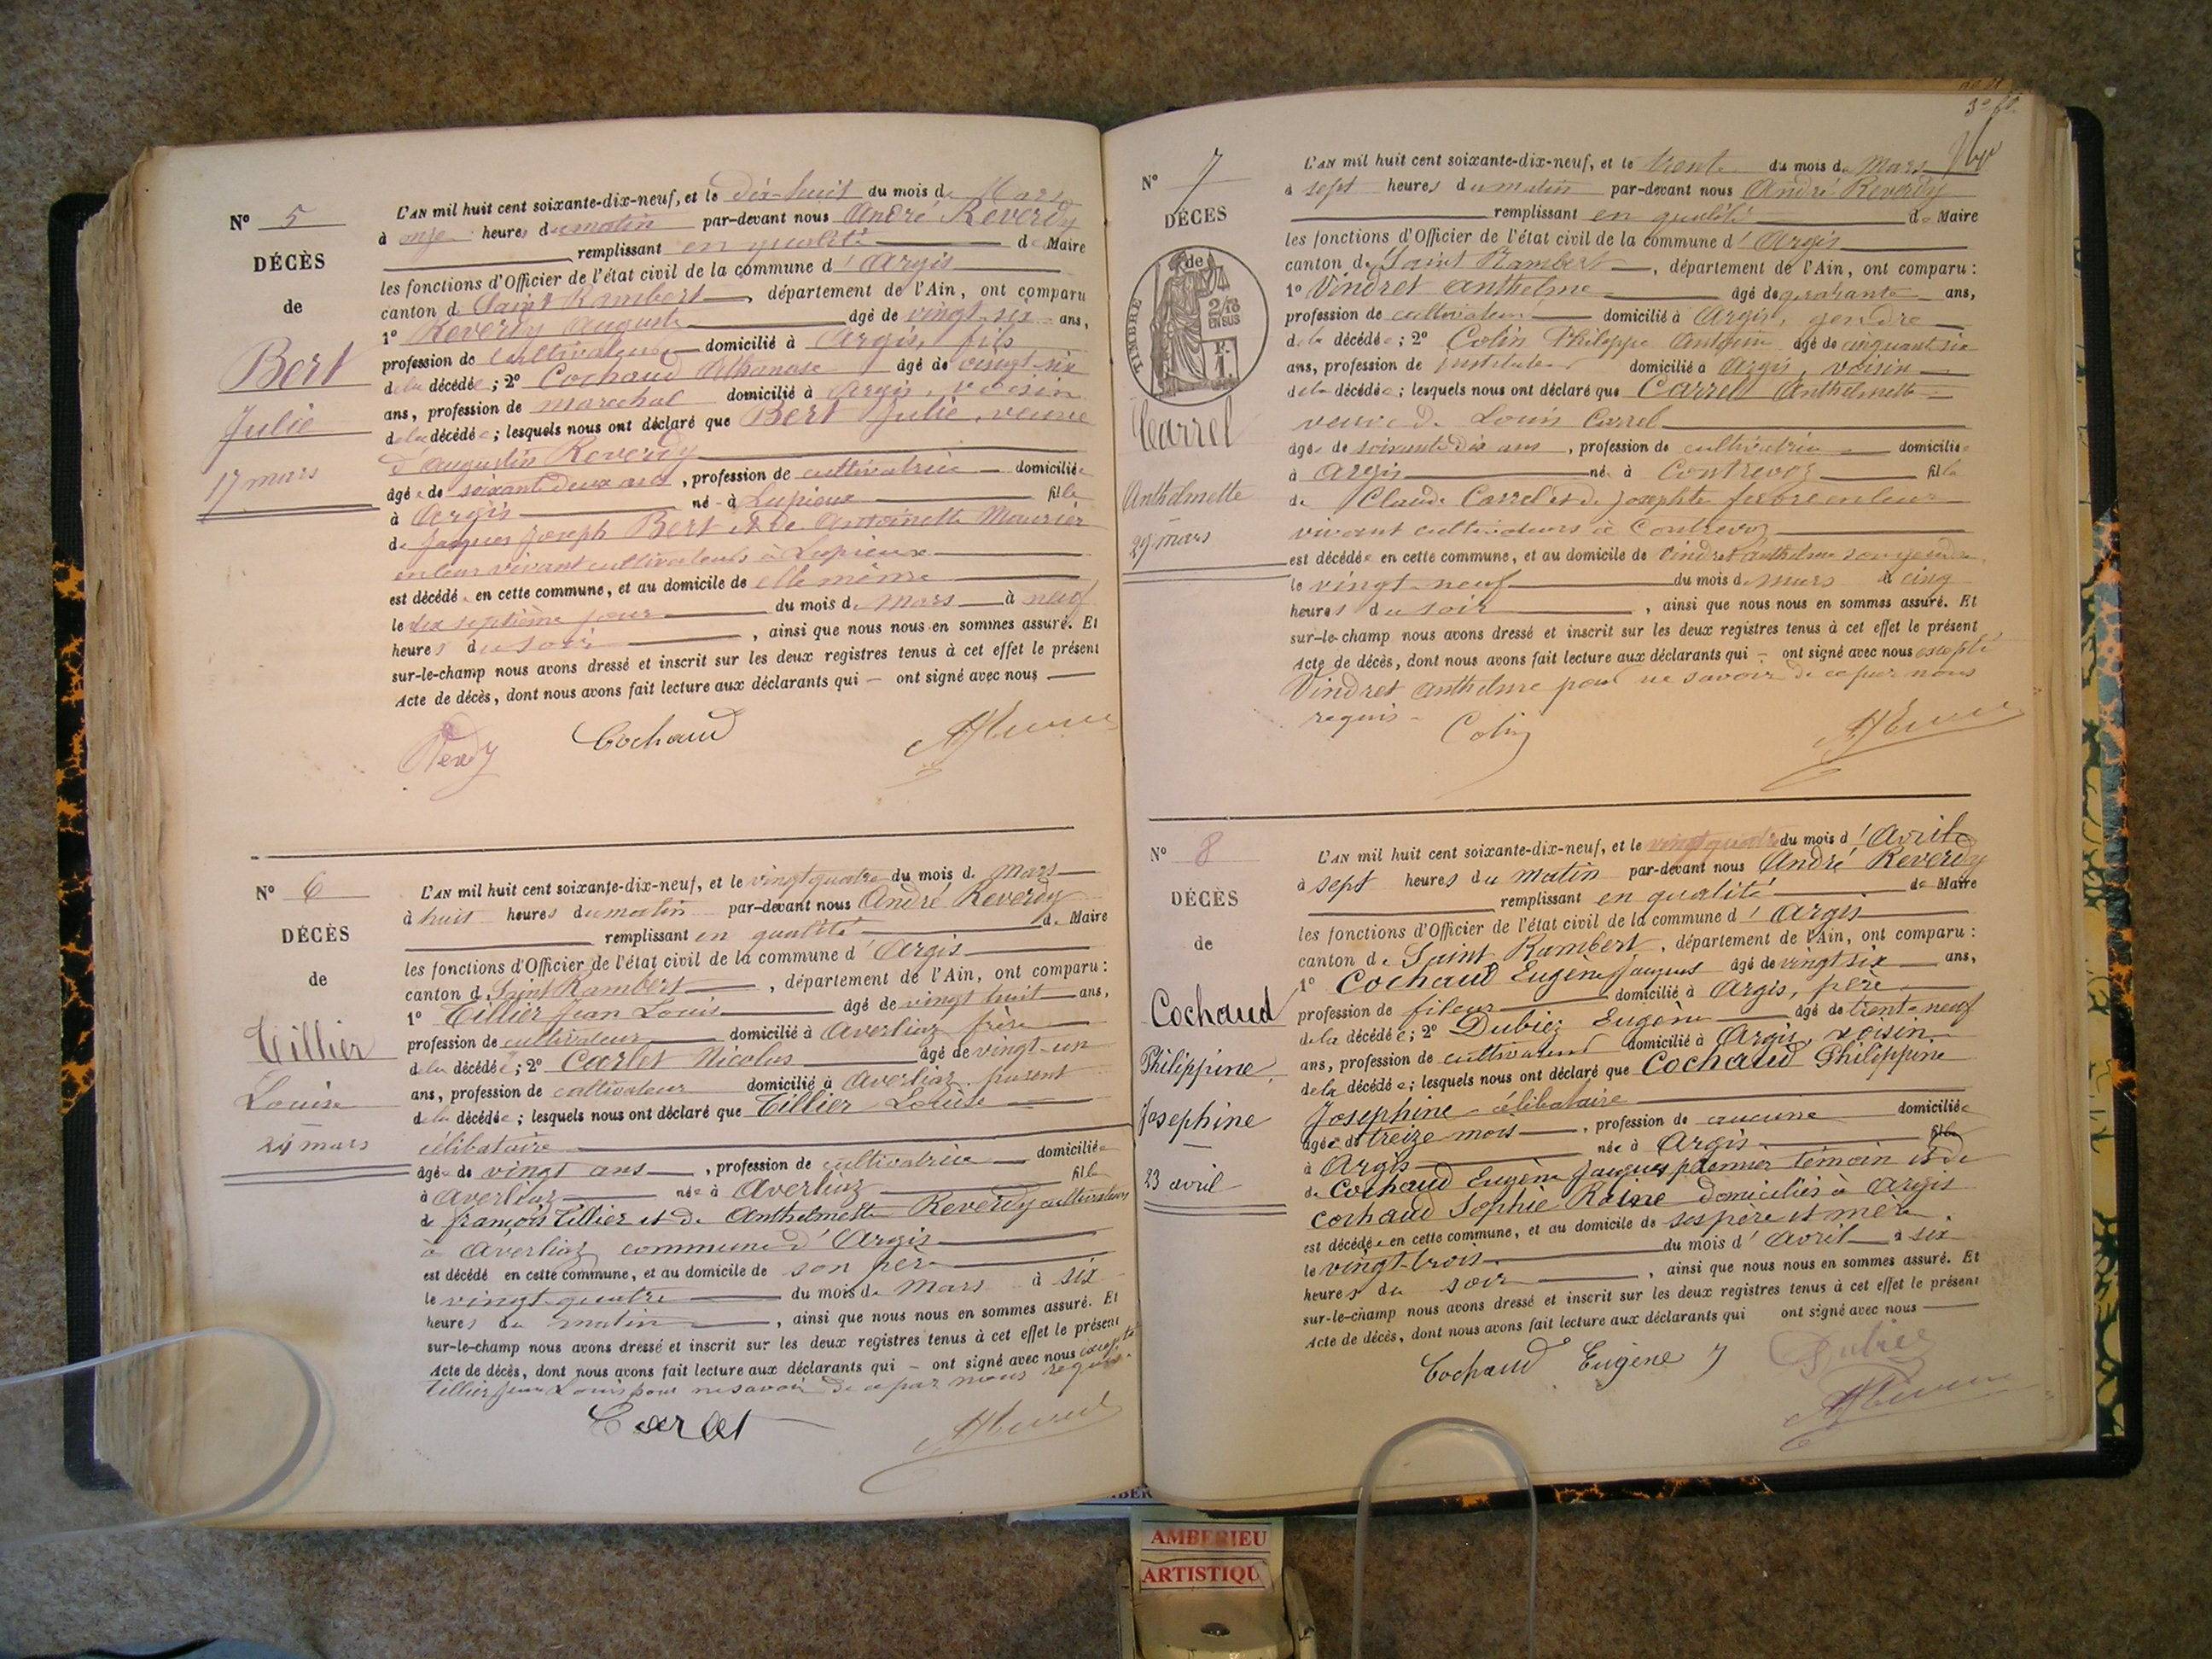 N° 5
DÉCÈS
de
Bert
Julie
17 mars
L'AN mil huit cent soixante-dix-neuf, et le dix-huit du mois de Mars
à onze heures du matin par-devant nous André Reverdy
remplissant en qualité de Maire
les fonctions d'Officier de l'état civil de la commune d'Argis
canton de Saint Rambert, département de l'Ain, ont comparu
1° Reverdy Auguste âgé de vingt-six ans,
profession de cultivateur domicilié à Argis, fils
de la décédée; 2° Cochaud Athanase âgé de vingt-six
ans, profession de maréchal domicilié à Argis, voisin
de la décédée; lesquels nous ont déclaré que Bert Julie, veuve
d'Augustin Reverdy
âgée de soixante deux ans, profession de cultivatrice domiciliée
à Argis née à Lupieux fille
de Jacques Joseph Bert et de Antoinette Maurier
en leur vivant cultivateurs à Lupieux
est décédé en cette commune, et au domicile de elle même
le dix septième jour du mois de Mars à neuf
heures du soir, ainsi que nous nous en sommes assuré. Et
sur-le-champ nous avons dressé et inscrit sur les deux registres tenus à cet effet le présent
Acte de décès, dont nous avons fait lecture aux déclarants qui — ont signé avec nous —
Cochaud
N° 6
DÉCÈS
de
Tillier
Louise
24 mars
L'AN mil huit cent soixante-dix-neuf, et le vingt quatre du mois de mars
à huit heures du matin par-devant nous André Reverdy
remplissant en qualité de Maire
les fonctions d'Officier de l'état civil de la commune d'Argis
canton de Saint Rambert, département de l'Ain, ont comparu:
1° Tillier Jean Louis âgé de vingt huit ans,
profession de cultivateur domicilié à Averliaz frère
de la décédée; 2° Carlet Nicolas âgé de vingt-un
ans, profession de cultivateur domicilié à Averliaz, parent
de la décédée; lesquels nous ont déclaré que Tillier Louise
célibataire
âgée de vingt ans, profession de cultivatrice domiciliée
à Averliaz née à Averliaz fille
de françois Tillier et de Anthelmette Reverdy cultivateurs
à Averliaz commune d'Argis
est décédé en cette commune, et au domicile de son père
le vingt-quatre du mois de Mars à six
heures du matin, ainsi que nous nous en sommes assuré. Et
sur-le-champ nous avons dressé et inscrit sur les deux registres tenus à cet effet le présent
Acte de décès, dont nous avons fait lecture aux déclarants qui — ont signé avec nous excepté
Tillier Jean Louis pour ne savoir de ce par nous requis.
Carlet
3e fo.
N° 7
DÉCÈS
de
TIMBRE
2/10
EN SUS
F.
1.
Carrel
Anthelmette
29 mars
L'AN mil huit cent soixante-dix-neuf, et le trente du mois de Mars
à sept heures du matin par-devant nous André Reverdy
remplissant en qualité de Maire
les fonctions d'Officier de l'état civil de la commune d'Argis
canton de Saint Rambert, département de l'Ain, ont comparu:
1° Vindret Anthelme âgé de quarante ans,
profession de cultivateur domicilié à Argis, gendre
de la décédée; 2° Colin Philippe Antonin âgé de cinquante six
ans, profession de instituteur domicilié à Argis, voisin
de la décédée; lesquels nous ont déclaré que Carrel Anthelmette
veuve de Louis Carrel
âgée de soixante dix ans, profession de cultivatrice domiciliée
à Argis née à Contrevoz fille
de Claude Carrel et de Josephte febre en leur
vivant cultivateurs à Contrevoz
est décédée en cette commune, et au domicile de Vindret Anthelme son gendre
le vingt-neuf du mois de mars à cinq
heures du soir, ainsi que nous nous en sommes assuré. Et
sur-le-champ nous avons dressé et inscrit sur les deux registres tenus à cet effet le présent
Acte de décès, dont nous avons fait lecture aux déclarants qui — ont signé avec nous excepté
Vindret Anthelme pour ne savoir de ce par nous
requis.
Colin
N° 8
DÉCÈS
de
Cochaud
Philippine
Josephine
23 avril
L'AN mil huit cent soixante-dix-neuf, et le vingt quatre du mois d'Avril
à sept heures du matin par-devant nous André Reverdy
remplissant en qualité de Maire
les fonctions d'Officier de l'état civil de la commune d'Argis
canton de Saint Rambert, département de l'Ain, ont comparu:
1° Cochaud Eugène Jacques âgé de vingt six ans,
profession de fileur domicilié à Argis, père
de la décédée; 2° Dubiez Eugène âgé de trente-neuf
ans, profession de cultivateur domicilié à Argis, voisin
de la décédée; lesquels nous ont déclaré que Cochaud Philippine
Josephine célibataire
âgée de treize mois, profession de aucune domiciliée
à Argis née à Argis fille
de Cochaud Eugène Jacques premier témoin et de
Cochaud Sophie Reine domiciliés à Argis
est décédée en cette commune, et au domicile de ses père et mère
le vingt-trois du mois d'Avril à six
heures du soir, ainsi que nous nous en sommes assuré. Et
sur-le-champ nous avons dressé et inscrit sur les deux registres tenus à cet effet le présent
Acte de décès, dont nous avons fait lecture aux déclarants qui ont signé avec nous —
Cochaud Eugène J Dubiez
AMBERIEU
ARTISTIQU